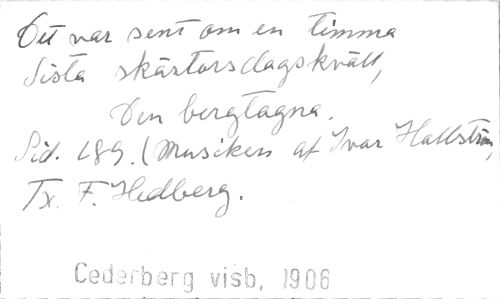 Det var sent om en timma
Sista skärtorsdagskväll,
Den bergtagna.
Sid. 189. (Musiken af Ivar Hallström,
Tx. F. Hedberg.
Cederberg visb, 1906